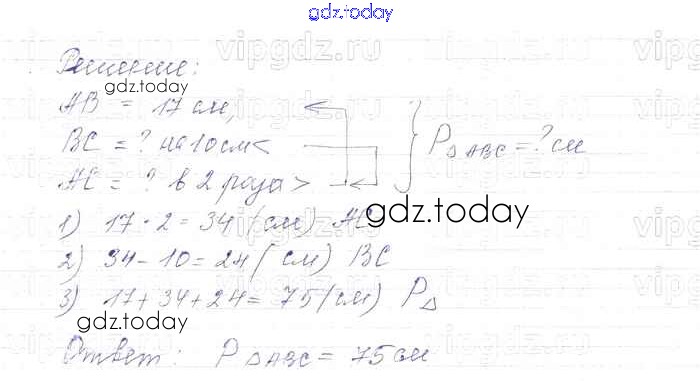 gdz.today
vipgdz.ru
Решение:
gdz.today
AB = 17 см,
BC = ? на 10 см <
AC = ? в 2 раза >
P△ABC = ? см
gdz.today
1) 17 · 2 = 34 (см) AC
2) 34 - 10 = 24 (см) BC
3) 17 + 34 + 24 = 75 (см) P△
gdz.today
Ответ: P△ABC = 75 см